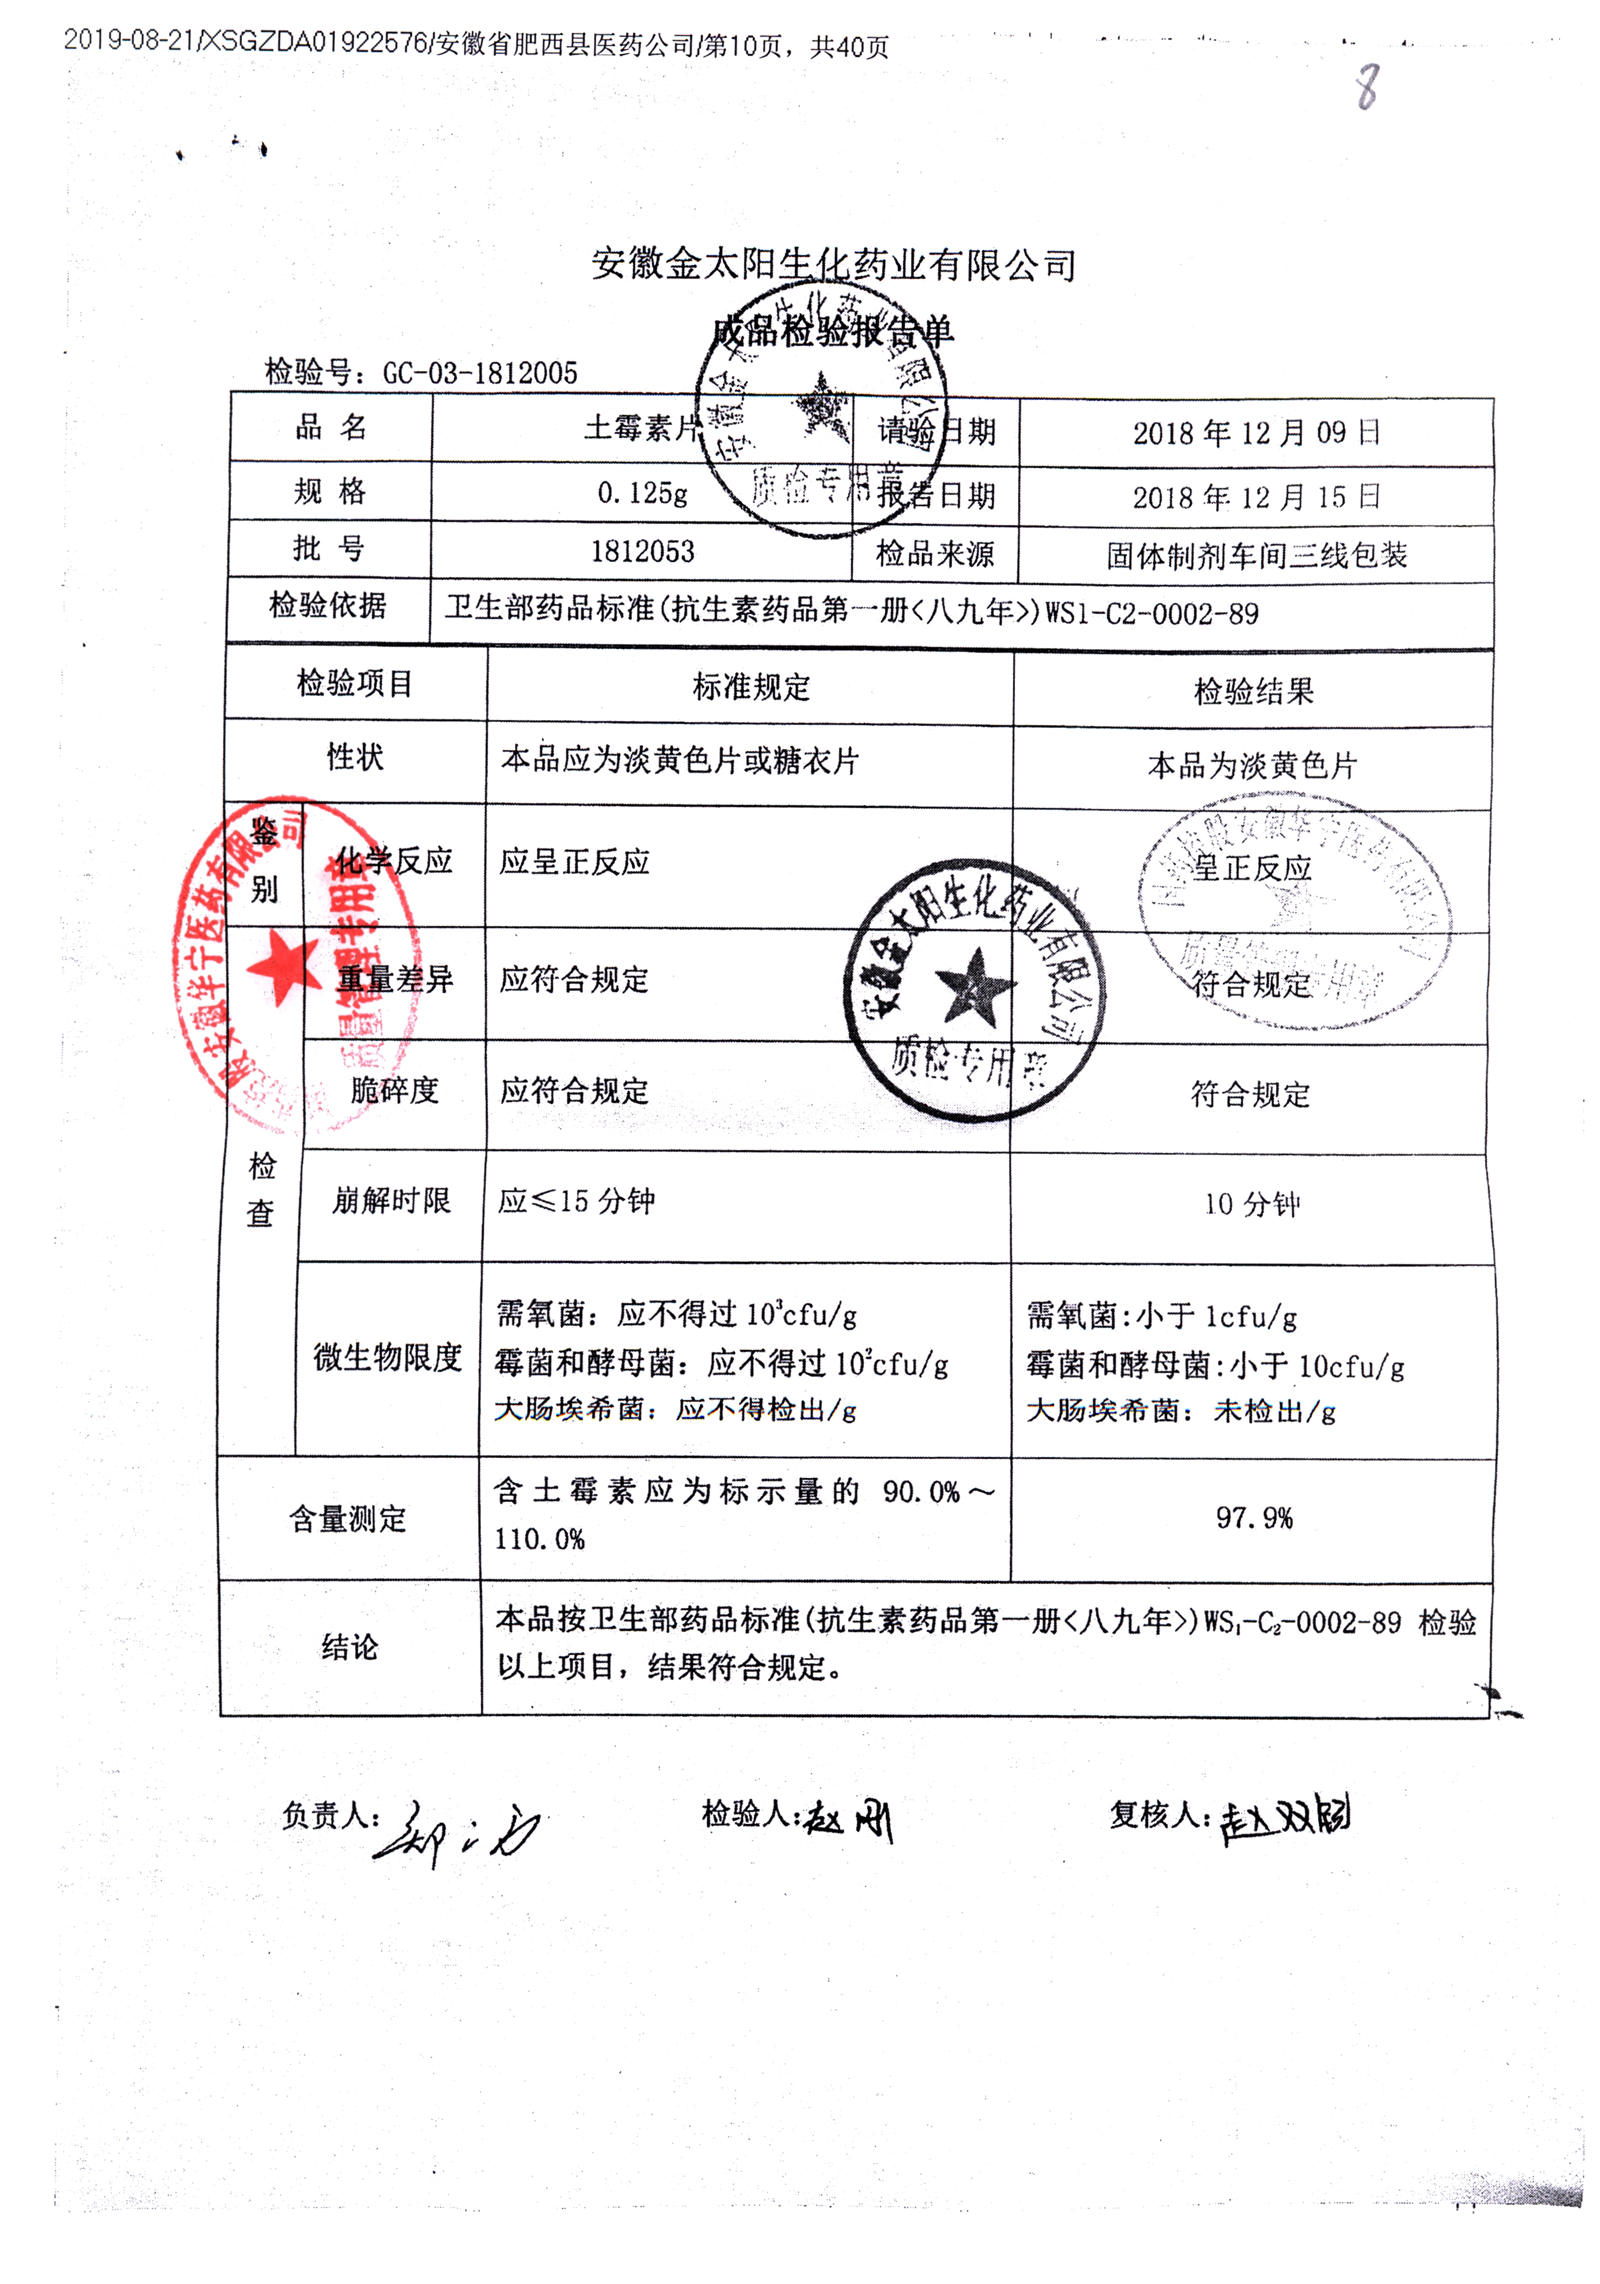 2019-08-21/XSGZDA01922576/安徽省肥西县医药公司/第10页，共40页
8
安徽金太阳生化药业有限公司
成品检验报告单
检验号：GC-03-1812005
品 名 土霉素片 请验日期 2018 年 12 月 09 日
规 格 0.125g 报告日期 2018 年 12 月 15 日
批 号 1812053 检品来源 固体制剂车间三线包装
检验依据 卫生部药品标准(抗生素药品第一册<八九年>)WS1-C2-0002-89
检验项目 标准规定 检验结果
性状 本品应为淡黄色片或糖衣片 本品为淡黄色片
鉴别 化学反应 应呈正反应 呈正反应
检查 重量差异 应符合规定 符合规定
脆碎度 应符合规定 符合规定
崩解时限 应≤15 分钟 10 分钟
微生物限度
需氧菌：应不得过 10³cfu/g 需氧菌:小于 1cfu/g
霉菌和酵母菌：应不得过 10²cfu/g 霉菌和酵母菌:小于 10cfu/g
大肠埃希菌：应不得检出/g 大肠埃希菌：未检出/g
含量测定 含土霉素应为标示量的 90.0%～ 97.9%
110.0%
结论 本品按卫生部药品标准(抗生素药品第一册<八九年>)WS₁-C₂-0002-89 检验
以上项目，结果符合规定。
安徽金太阳生化药业有限公司
质检专用章
安徽金太阳生化药业有限公司
质检专用章
安徽华宁医药有限公司
质量管理专用章
国药控股安徽华宁医药有限公司
质量管理专用章
负责人： 检验人:赵刚 复核人:赵双